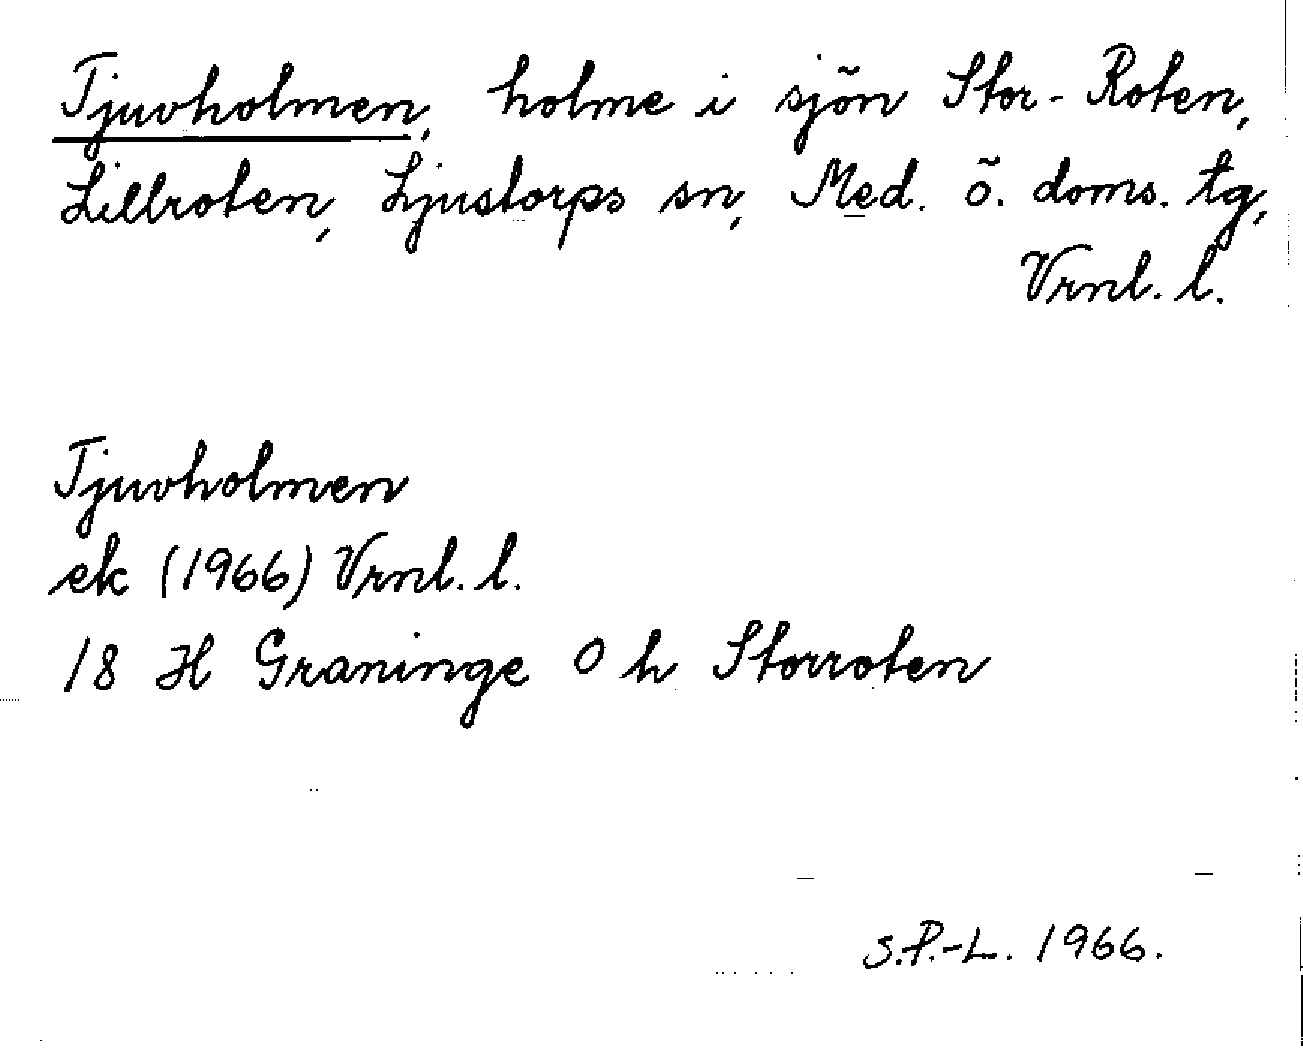 Tjuvholmen, holme i sjön Stor-Roten,
Lillroten, Ljustorps sn, Med. ö. doms. tg,
Vrnl. l.
Tjuvholmen
ek (1966) Vrnl. l.
18 H Graninge 0 h Storroten
S.P.-L. 1966.